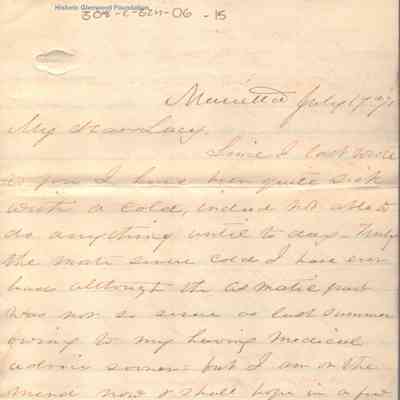 Historic Glenwood Foundation
308-C-Gen-06 -15
Marietta July 17th/
My dear Lucy,
Since I last wrote
to you I have been quite sick
with a cold, indeed not able to
do anything until to day - Truly
the most severe cold I have ever
had although the asmatic part
was not so severe as last summer
owing to my having medical
advice sooner - but I am on the
mend now & shall hope in a few